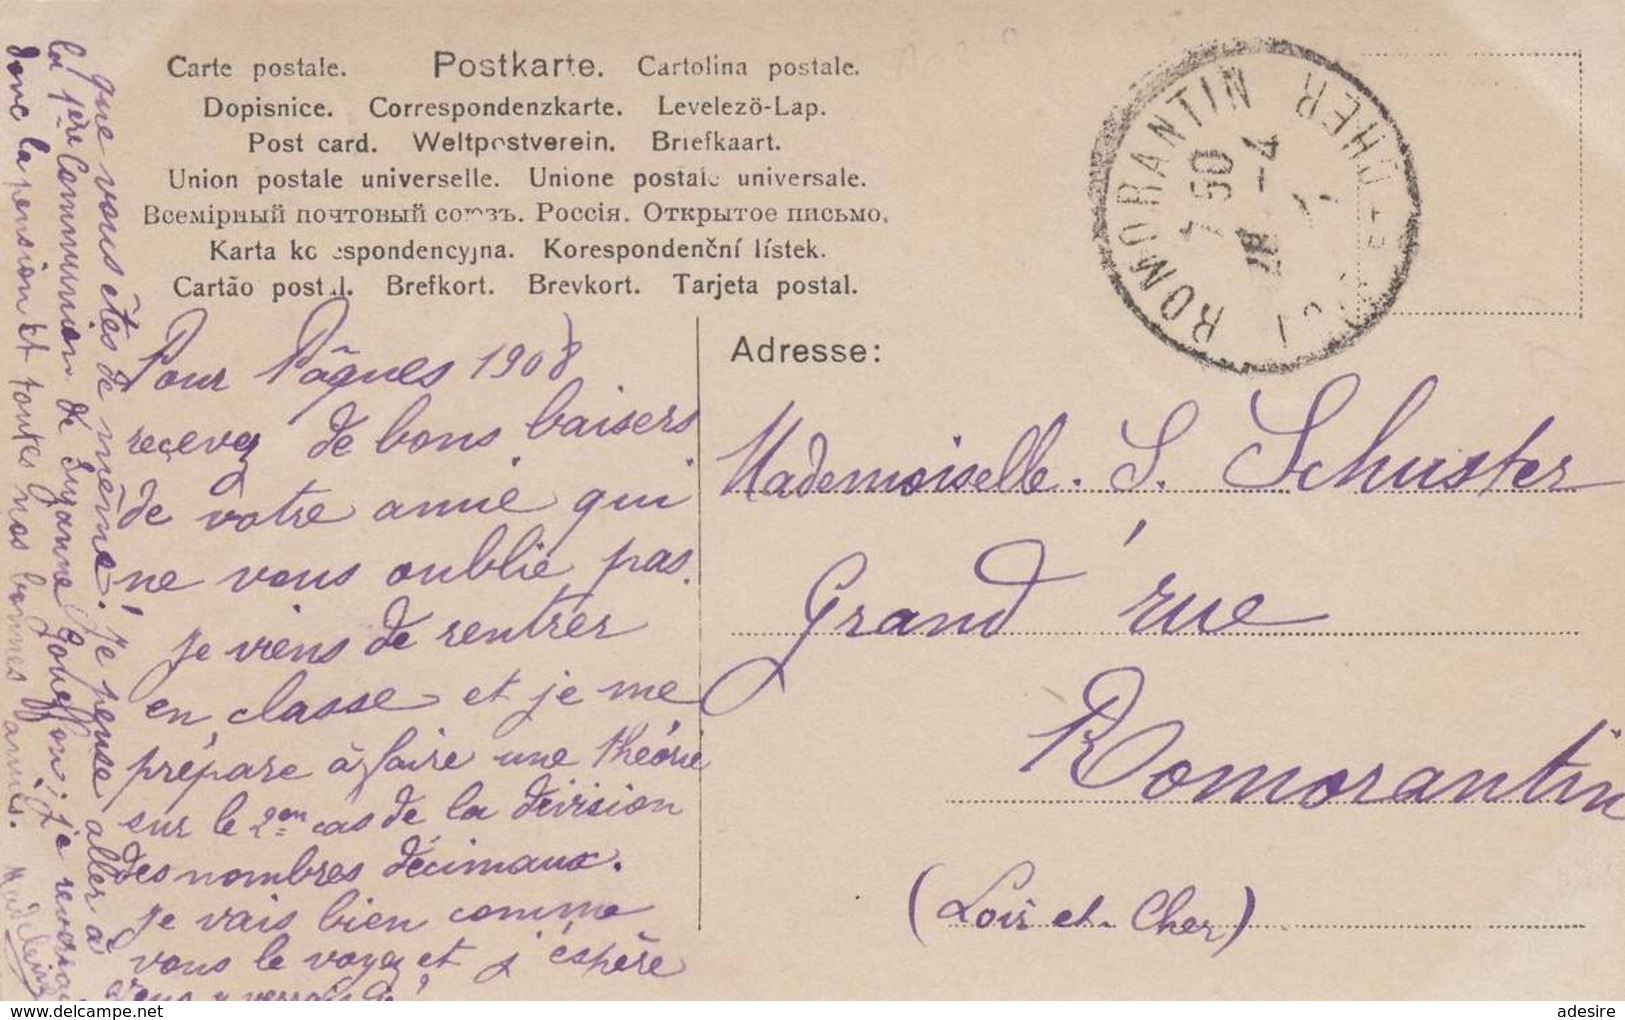 Carte postale. Postkarte. Cartolina postale.
Dopisnice. Correspondenzkarte. Levelezö-Lap.
Post card. Weltpostverein. Briefkaart.
Union postale universelle. Unione postale universale.
Всемірный почтовый союзъ. Россія. Открытое письмо.
Karta korespondencyjna. Korespondenční lístek.
Cartão postal. Brefkort. Brevkort. Tarjeta postal.
ROMORANTIN
CHER
7 50
28 -4
Adresse:
Mademoiselle. S. Schuster
Grand' rue
Romorantin
(Loir et. Cher)
Pour Pâques 1908
recevez de bons baisers
de votre amie qui
ne vous oublie pas.
Je viens de rentrer
en classe et je me
prépare à faire une théorie
sur le 2em cas de la division
des nombres décimaux.
Je vais bien comme
vous le voyez et j'éspère
que vous êtes de même! Je pense aller à
la 1ère Communion de Suzanne je
donc la pension et toutes nos bonnes amies. Madeleine
adesire